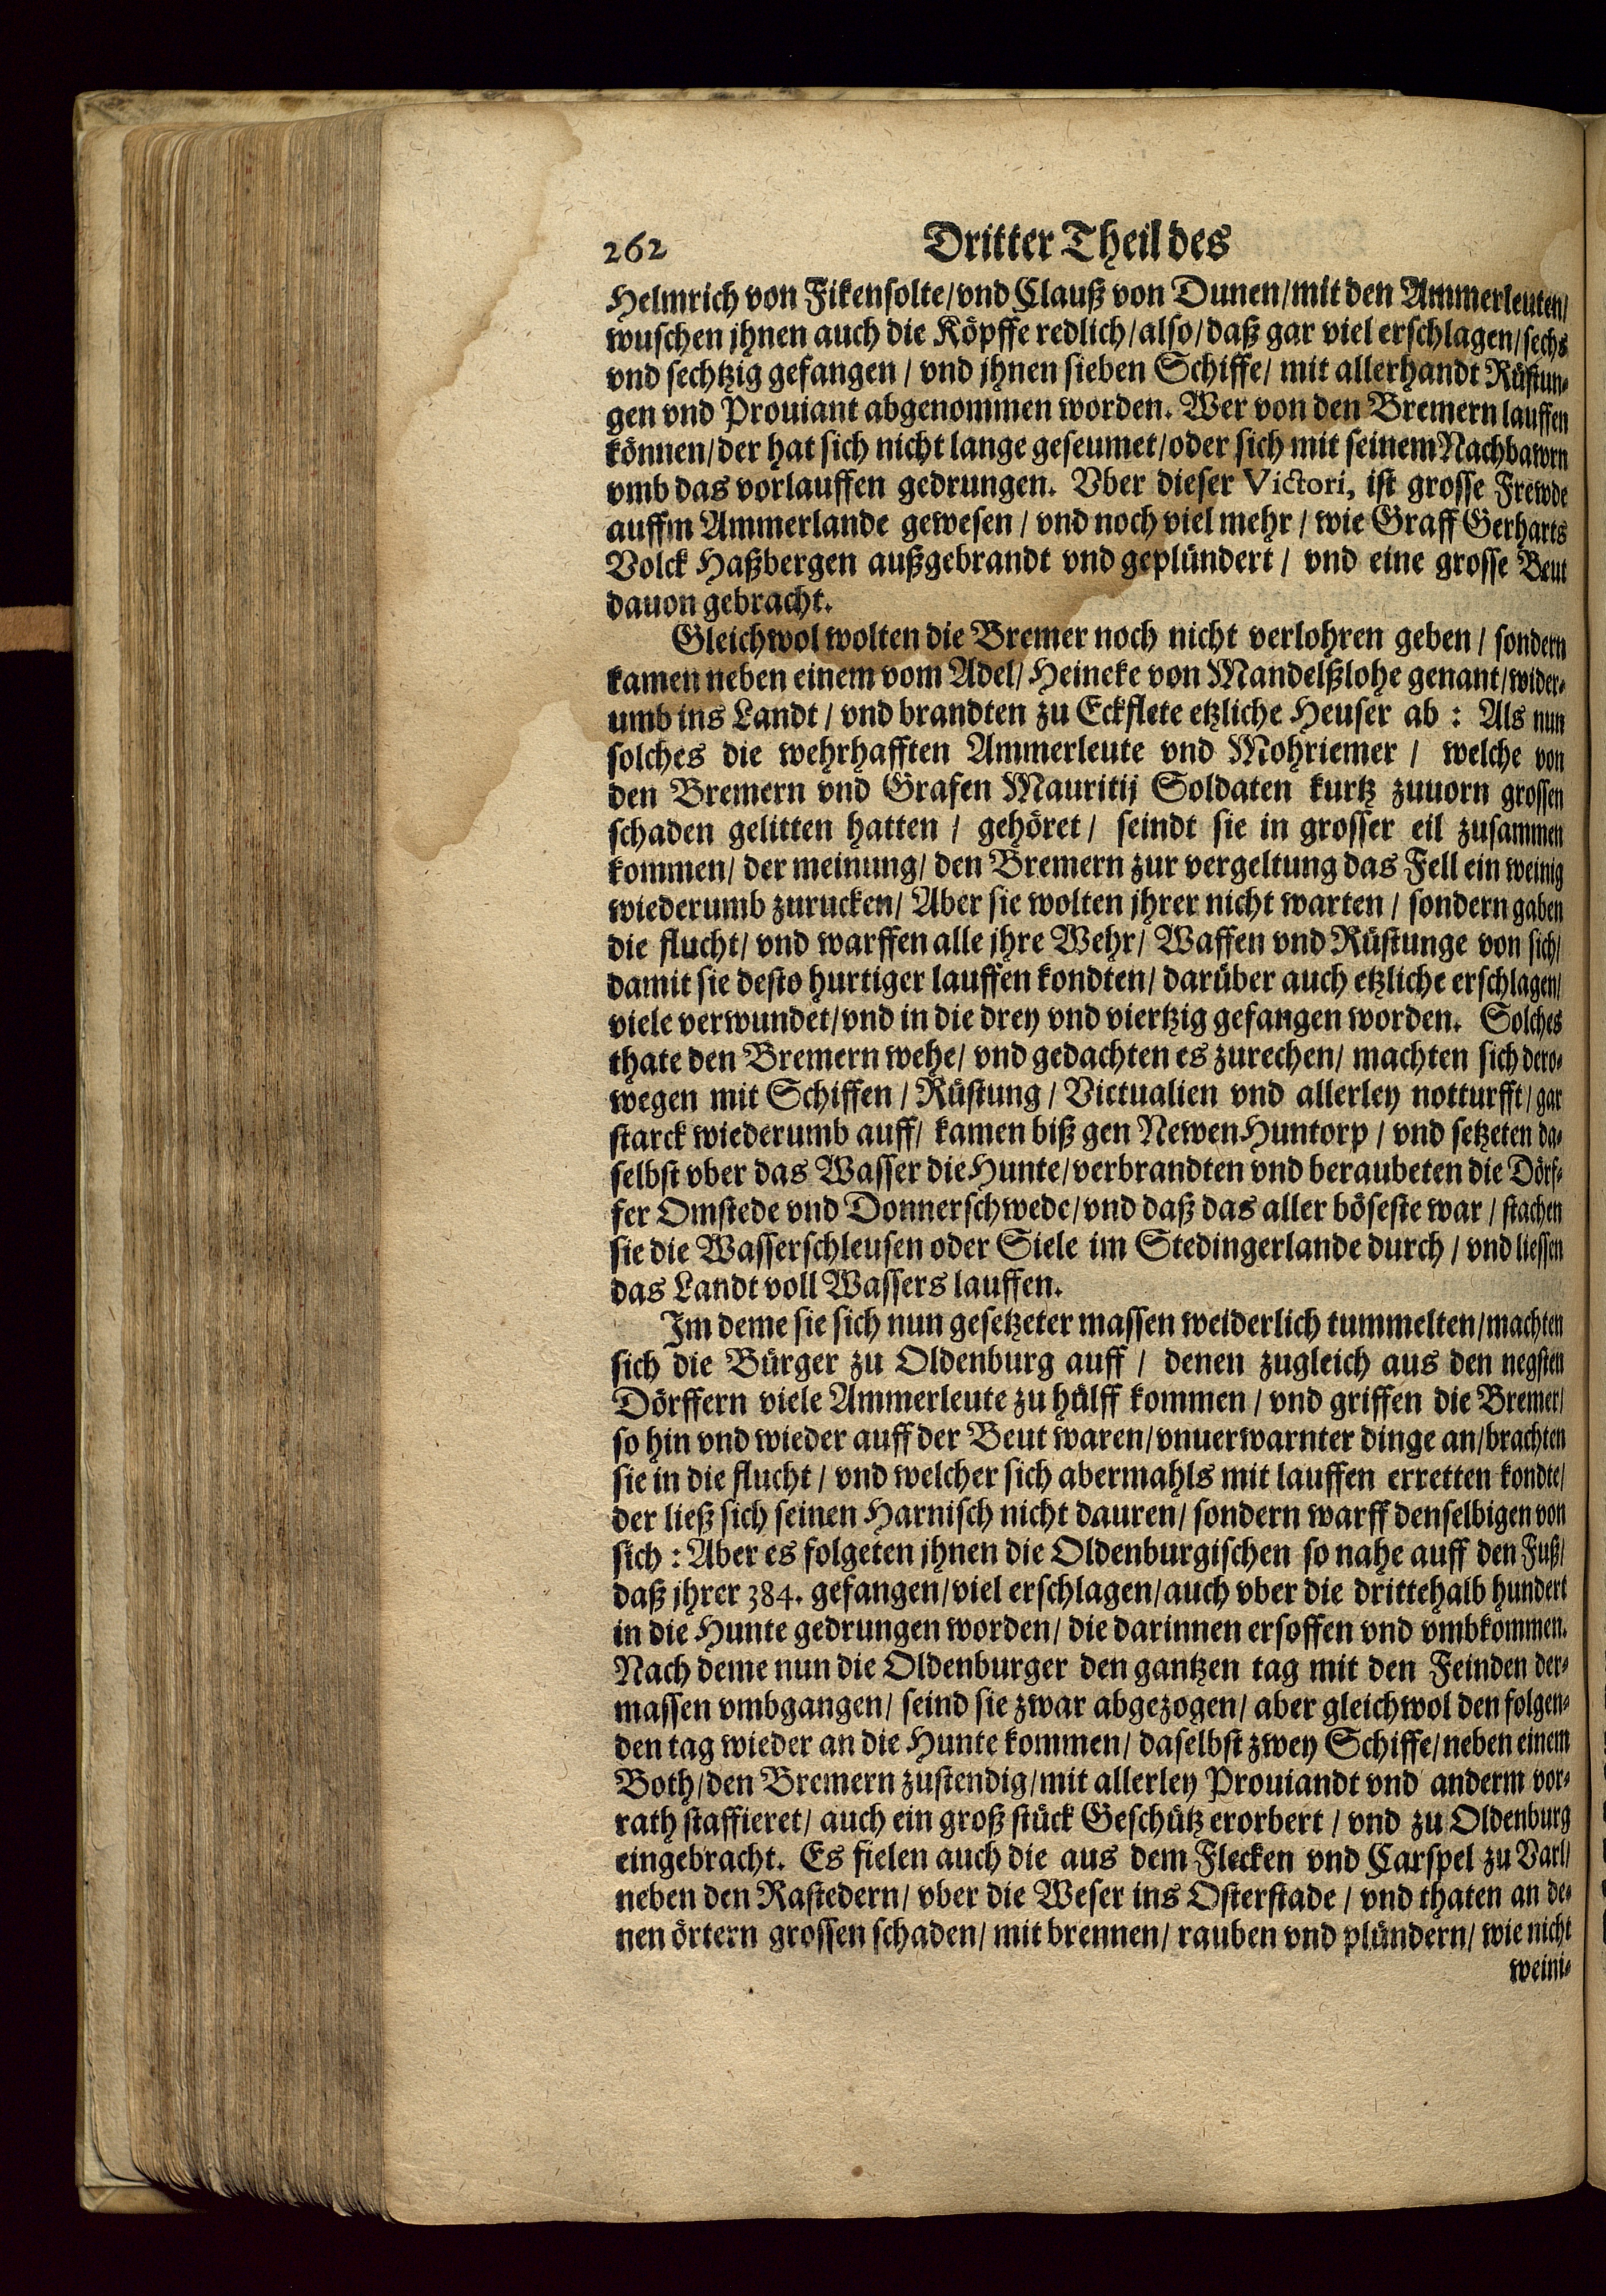 262 Dritter Theil des
Helmrich von Fikensolte/vnd Clauß von Dunen/mit den Ammerleuten/
wuschen jhnen auch die Köpffe redlich/also/daß gar viel erschlagen/sechs
vnd sechtzig gefangen / vnd jhnen sieben Schiffe/ mit allerhandt Rüstun-
gen vnd Prouiant abgenommen worden. Wer von den Bremern lauffen
können/der hat sich nicht lange geseumet/oder sich mit seinem Nachbawrn
vmb das vorlauffen gedrungen. Vber dieser Victori, ist grosse Frewde
auffm Ammerlande gewesen / vnd noch viel mehr / wie Graff Gerharts
Volck Haßbergen außgebrandt vnd geplündert / vnd eine grosse Beut
dauon gebracht.
Gleichwol wolten die Bremer noch nicht verlohren geben / sondern
kamen neben einem vom Adel/ Heineke von Mandelßlohe genant/wider-
umb ins Landt / vnd brandten zu Eckflete etzliche Heuser ab : Als nun
solches die wehrhafften Ammerleute vnd Mohriemer / welche von
den Bremern vnd Grafen Mauritij Soldaten kurtz zuuorn grossen
schaden gelitten hatten / gehöret / seindt sie in grosser eil zusammen
kommen/ der meinung/ den Bremern zur vergeltung das Fell ein weinig
wiederumb zurucken/ Aber sie wolten jhrer nicht warten / sondern gaben
die flucht/ vnd warffen alle jhre Wehr/ Waffen vnd Rüstunge von sich/
damit sie desto hurtiger lauffen kondten/ darüber auch etzliche erschlagen/
viele verwundet/vnd in die drey vnd viertzig gefangen worden. Solches
thate den Bremern wehe/ vnd gedachten es zurechen/ machten sich dero-
wegen mit Schiffen / Rüstung / Victualien vnd allerley notturfft / gar
starck wiederumb auff/ kamen biß gen Newen Huntorp / vnd setzeten da-
selbst vber das Wasser die Hunte/verbrandten vnd beraubeten die Dörf-
fer Omstede vnd Donnerschwede/vnd daß das aller böseste war / stachen
sie die Wasserschleusen oder Siele im Stedingerlande durch / vnd liessen
das Landt voll Wassers lauffen.
Im deme sie sich nun gesetzeter massen weiderlich tummelten/machten
sich die Bürger zu Oldenburg auff / denen zugleich aus den negsten
Dörffern viele Ammerleute zu hülff kommen / vnd griffen die Bremer/
so hin vnd wieder auff der Beut waren/vnuerwarnter dinge an/brachten
sie in die flucht / vnd welcher sich abermahls mit lauffen erretten kondte/
der ließ sich seinen Harnisch nicht dauren/ sondern warff denselbigen von
sich : Aber es folgeten jhnen die Oldenburgischen so nahe auff den Fuß/
daß jhrer 384. gefangen/viel erschlagen/auch vber die drittehalb hundert
in die Hunte gedrungen worden/ die darinnen ersoffen vnd vmbkommen.
Nach deme nun die Oldenburger den gantzen tag mit den Feinden der-
massen vmbgangen/ seind sie zwar abgezogen/ aber gleichwol den folgen-
den tag wieder an die Hunte kommen/ daselbst zwey Schiffe/neben einem
Both/den Bremern zustendig/mit allerley Prouiandt vnd anderm vor-
rath staffieret/ auch ein groß stück Geschütz erorbert / vnd zu Oldenburg
eingebracht. Es fielen auch die aus dem Flecken vnd Carspel zu Varl/
neben den Rastedern/ vber die Weser ins Osterstade / vnd thaten an de-
nen örtern grossen schaden/ mit brennen/ rauben vnd plündern/ wie nicht
weini-